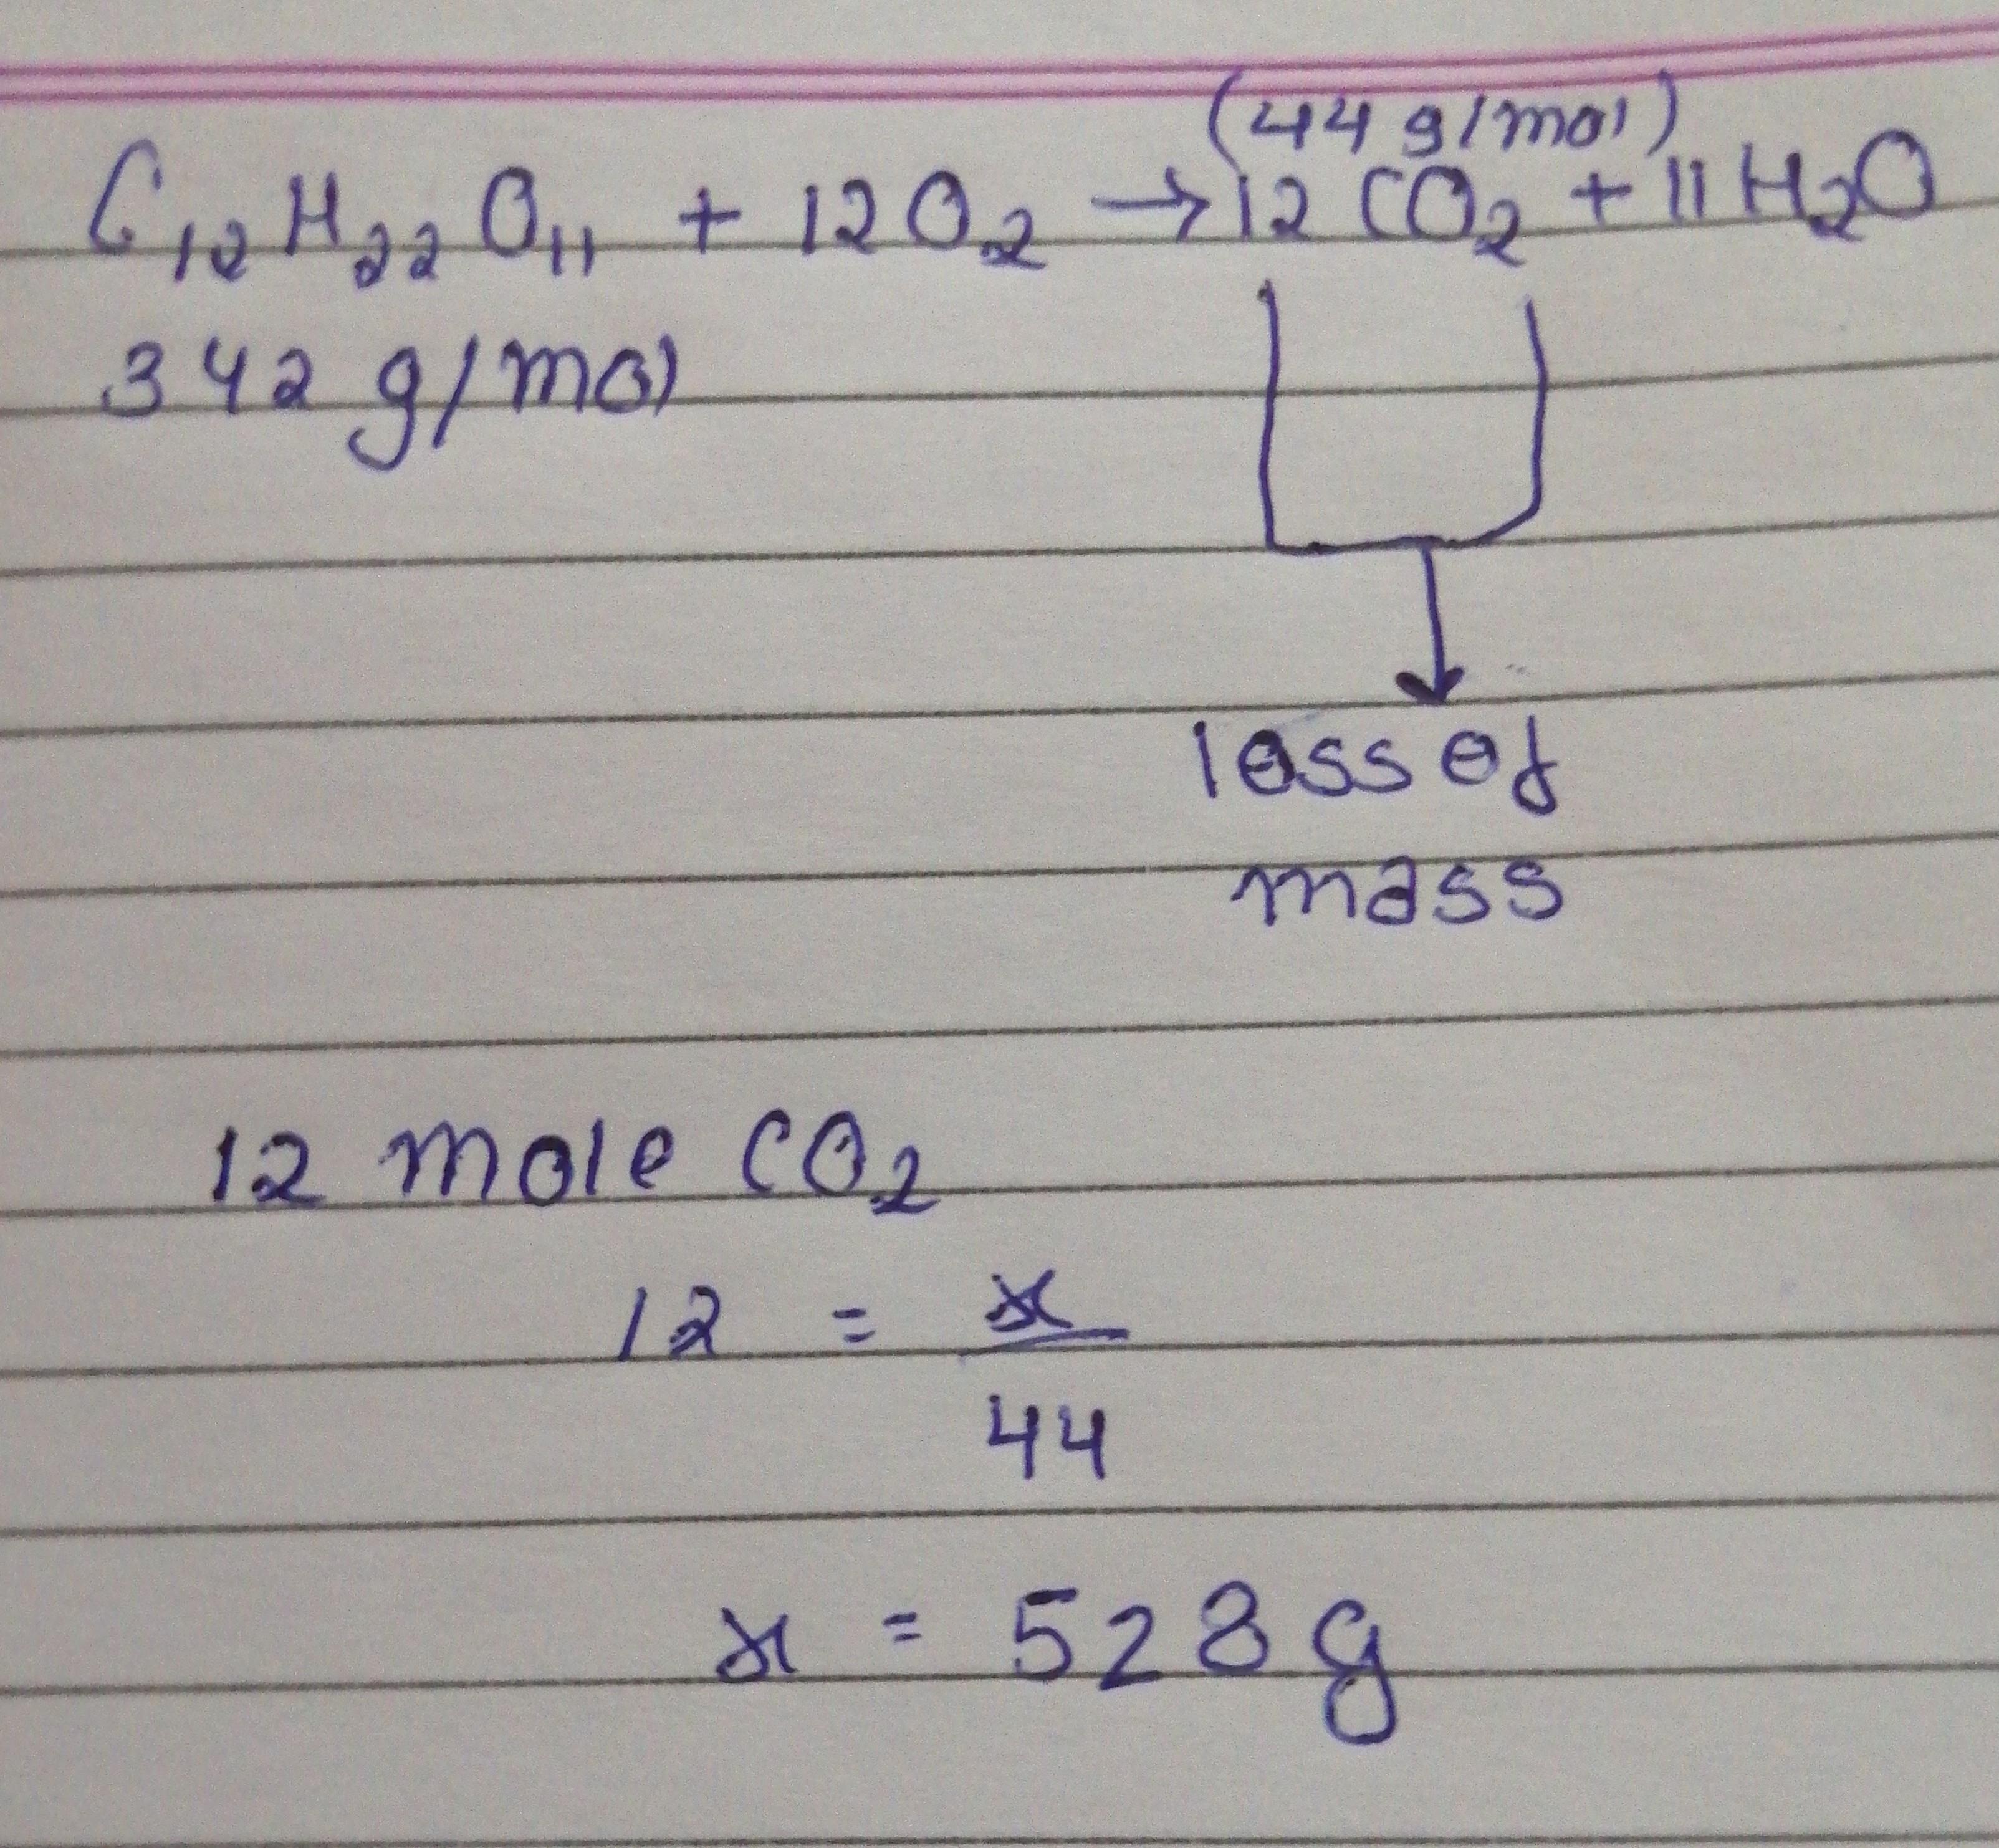 (44 g/mol)
C₁₂H₂₂O₁₁ + 12O₂ → 12CO₂ + 11H₂O
342 g/mol
loss of
mass
12 mole CO₂
12 = x/44
x = 528 g